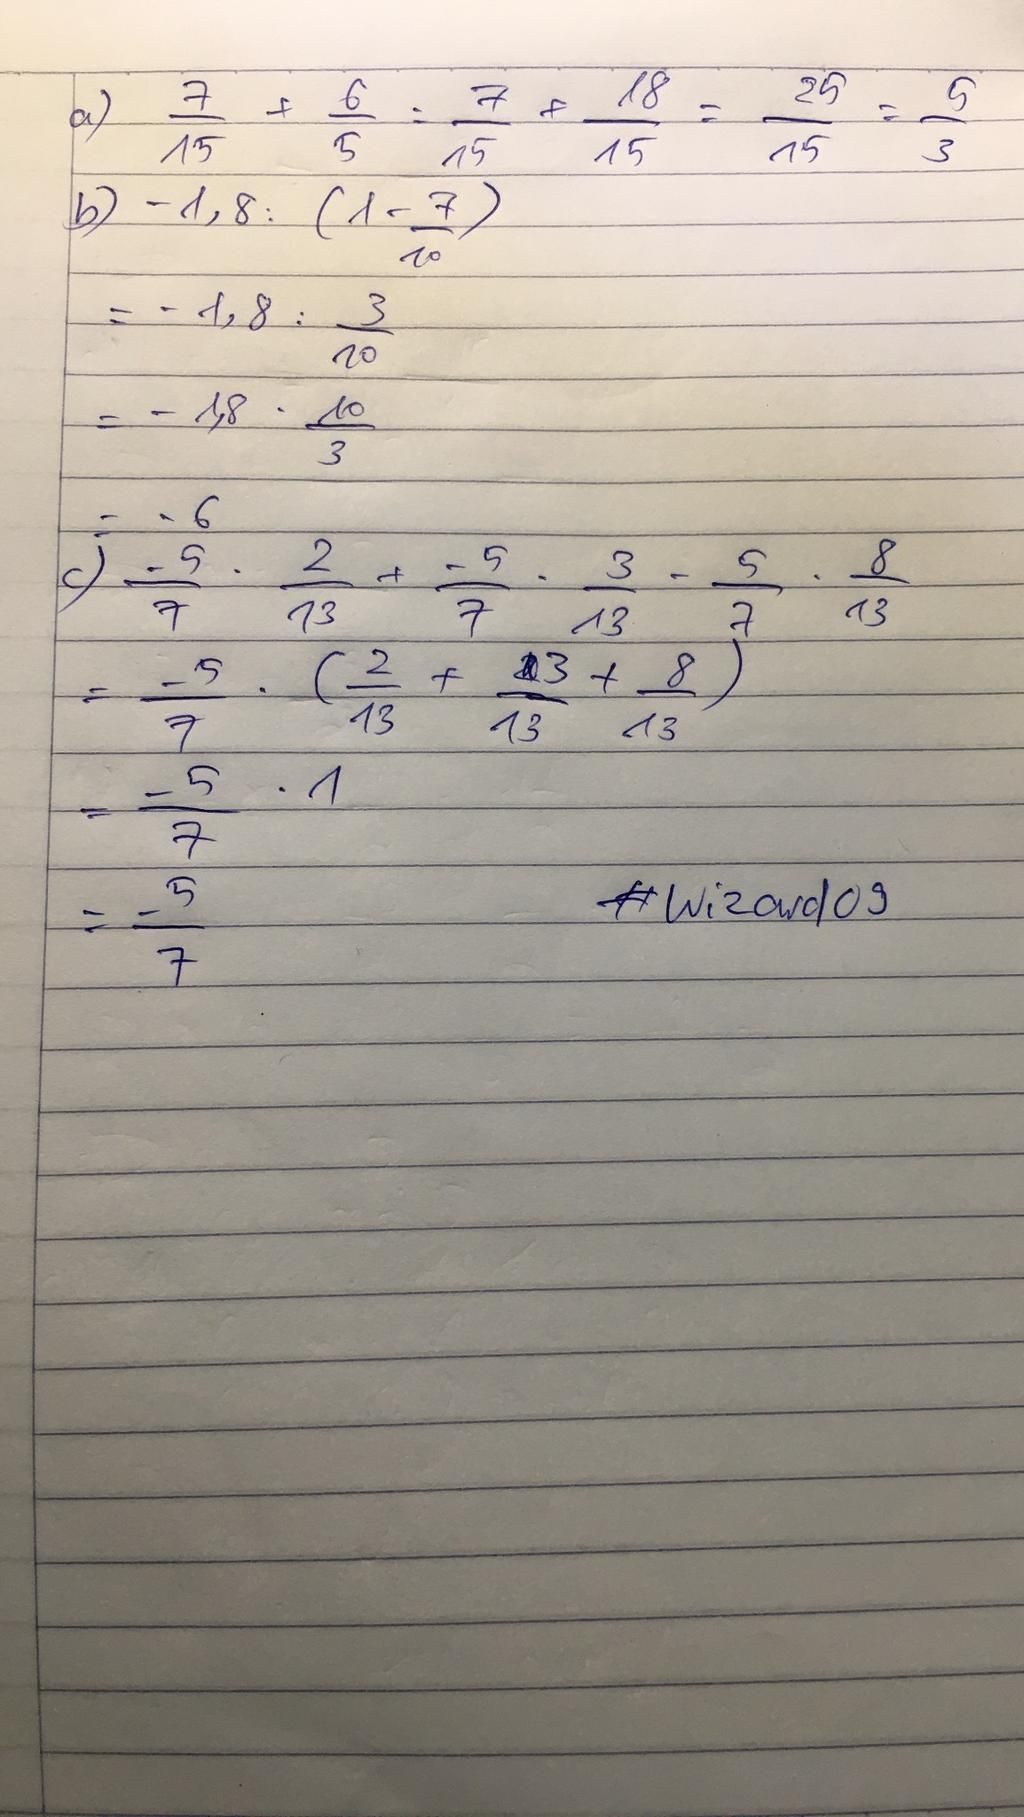 a) 7/15 + 6/5 = 7/15 + 18/15 = 25/15 = 5/3
b) -1,8 : (1 - 7/10)
= -1,8 : 3/10
= -1,8 · 10/3
= -6
c) -5/7 · 2/13 + -5/7 · 3/13 - 5/7 · 8/13
= -5/7 · (2/13 + 3/13 + 8/13)
= -5/7 · 1
= -5/7
#Wizard09